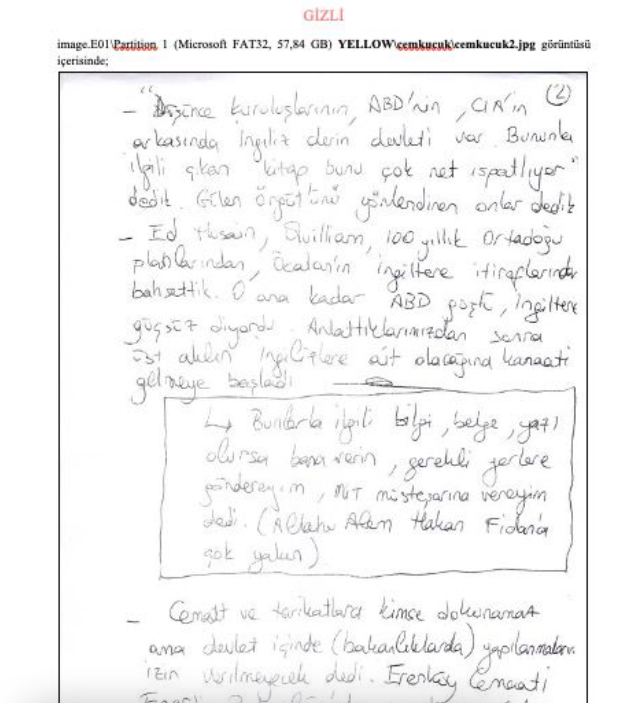 GİZLİ
image.E01\Partition 1 (Microsoft FAT32, 57,84 GB) YELLOW\cemkucuk\cemkucuk2.jpg görüntüsü
içerisinde;
(2)
- "Düşünce kuruluşlarının, ABD'nin, CIA'in
arkasında İngiliz derin devleti var. Bununla
ilgili çıkan kitap bunu çok net ispatlıyor"
dedik. Gülen Örgütünü yönlendiren onlar dedik
- Ed Husain, Quilliam, 100 yıllık Ortadoğu
planlarından, Öcalan'ın İngiltere itiraflarından
bahsettik. O ana kadar ABD güçlü, İngiltere
güçsüz diyordu. Anlattıklarımızdan sonra
üst aklın İngilizlere ait olacağına kanaati
gelmeye başladı
↳ Bunlarla ilgili bilgi, belge, yazı
olursa bana verin, gerekli yerlere
göndereyim, MİT müsteşarına vereyim
dedi. (Allahu Alem Hakan Fidan'a
çok yakın)
- Cemaat ve tarikatlara kimse dokunamaz
ama devlet içinde (bakanlıklarda) yapılanmaları
izin verilmeyecek dedi. Erenköy Cemaati